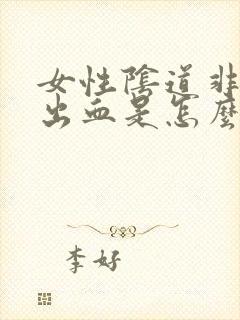 女性陰道非
出血是怎麼
李好